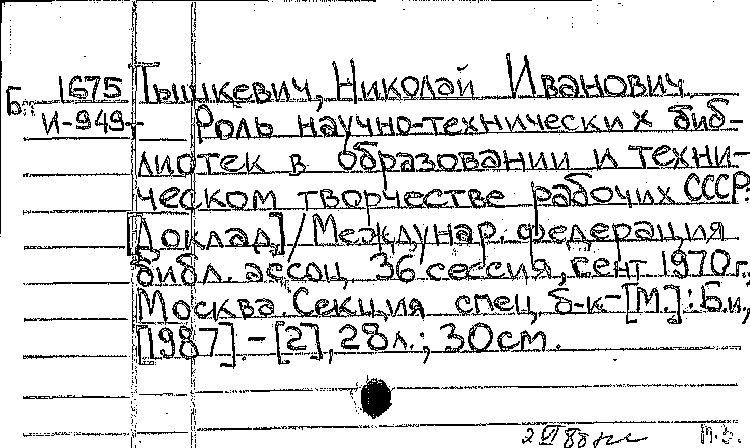 Бп 1675 Тышкевич, Николай Иванович.
И-949 Роль научно-технических биб-
лиотек в образовании и техни-
ческом творчестве рабочих СССР:
[Доклад] / Междунар. федерация
библ. ассоц, 36 сессия, сент 1970 г.,
Москва. Секция спец. б-к.-[М.]: Б.и.,
[1987]. - [2], 28 л.; 30 см.
2 VI 88